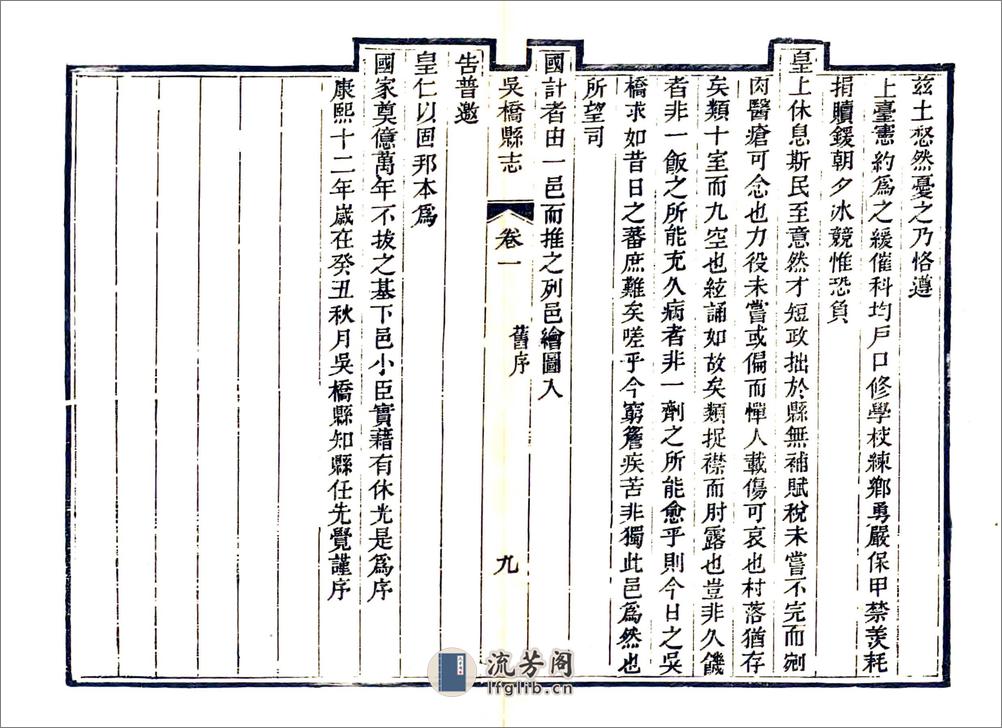 茲土愁然憂之乃恪遵
上臺憲約為之緩催科均戶口修學校練鄉勇嚴保甲禁羨耗
捐贖鍰朝夕冰競惟恐負
皇上休息斯民至意然才短政拙於縣無補賦稅未嘗不完而剜
肉醫瘡可念也力役未嘗或偏而憚人載傷可哀也村落猶存
矣類十室而九空也絃誦如故矣類捉襟而肘露也豈非久饑
者非一飯之所能充久病者非一劑之所能愈乎則今日之吳
橋求如昔日之蕃庶難矣嗟乎今窮簷疾苦非獨此邑為然也
所望司
國計者由一邑而推之列邑繪圖入
吳橋縣志
卷一
舊序
九
告普邀
皇仁以固邦本為
國家奠億萬年不拔之基下邑小臣實藉有休光是為序
康熙十二年歲在癸丑秋月吳橋縣知縣任先覺謹序
流芳阁
lfglib.cn